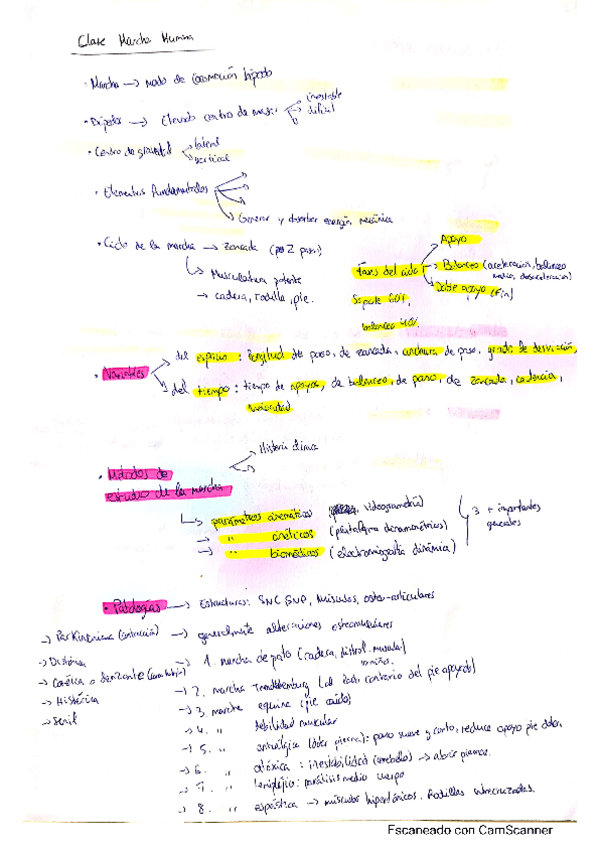 Clase Marcha Humana
· Marcha → modo de locomoción bípedo
· Bípedos → Elevado centro de masas
inestable
difícil
· Centro de gravedad
lateral
vertical
· Elementos fundamentales
Generar y absorber energía mecánica
· Ciclo de la marcha → Zancada (por 2 pasos)
Musculatura potente
→ cadera, rodilla, pie.
Fases del ciclo
Apoyo
Balanceo (aceleración, balanceo
medio, desaceleración)
Doble apoyo (fin)
Soporte 60%
balanceo 40%
· Variables
del espacio : longitud de paso, de zancada, anchura de paso, grado de desviación,
del tiempo : tiempo de apoyos, de balanceo, de paso, de zancada, cadencia,
velocidad
· Métodos de
estudio de la marcha
Historia clínica
parámetros cinemáticos videogrametría)
→ " cinéticos (plataforma dinamométricas)
→ " biomédicos (electromiografía dinámica)
3 + importantes
generales
· Patologías → Estructuras: SNC, SNP, Músculos, osteo-articulares
→ Parkinsoniana → generalmente alteraciones osteomusculares
→ Distónica
→ Coréica o danzante
→ Histérica
→ Senil
→ 1. marcha de pato (cadera, distrof. muscular)
→ 2. marcha Trendelenburg (al lado contrario del pie apoyado)
→ 3. marcha equina (pie caído)
→ 4. " debilidad muscular
→ 5. " antiálgica : paso suave y corto, reduce apoyo pie dolor.
→ 6. " atáxica : inestabilidad (cerebelo) → abrir piernas.
→ 7. " hemipléjica: parálisis medio cuerpo
→ 8. " espástica → músculos hipertónicos. Rodillas entrecruzadas.
Escaneado con CamScanner